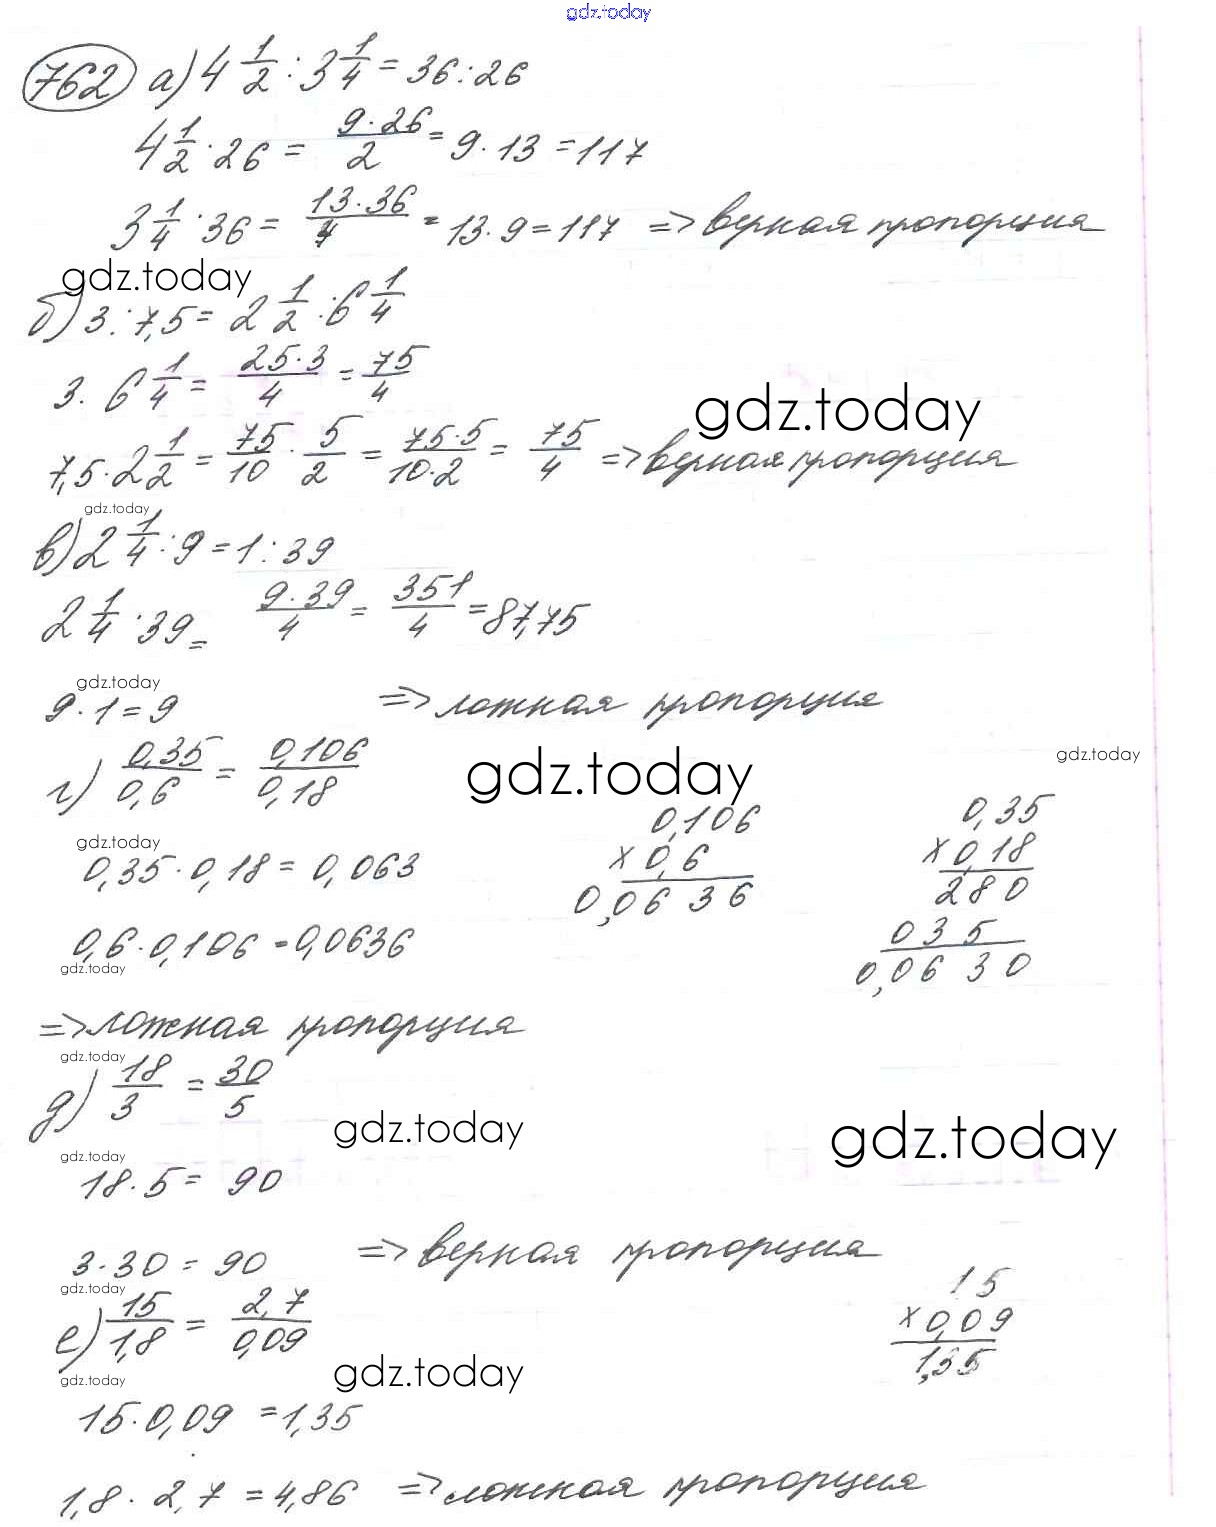 gdz.today
762 а) 4 1/2 : 3 1/4 = 36 : 26
4 1/2 · 26 = 9·26/2 = 9·13 = 117
3 1/4 · 36 = 13·36/4 = 13·9 = 117 => верная пропорция
gdz.today
б) 3 : 7,5 = 2 1/2 : 6 1/4
3 · 6 1/4 = 25·3/4 = 75/4
gdz.today
7,5 · 2 1/2 = 75/10 · 5/2 = 75·5/10·2 = 75/4 => верная пропорция
gdz.today
в) 2 1/4 : 9 = 1 : 39
2 1/4 · 39 = 9·39/4 = 351/4 = 87,75
gdz.today
9 · 1 = 9 => ложная пропорция
г) 0,35/0,6 = 0,106/0,18
gdz.today
gdz.today
gdz.today
0,35 · 0,18 = 0,063
0,6 · 0,106 = 0,0636
0,106
× 0,6
0,0636
0,35
× 0,18
280
035
0,0630
gdz.today
=> ложная пропорция
gdz.today
д) 18/3 = 30/5
gdz.today
gdz.today
gdz.today
18 · 5 = 90
3 · 30 = 90 => верная пропорция
gdz.today
е) 15/1,8 = 2,7/0,09
15
× 0,09
1,35
gdz.today
gdz.today
15 · 0,09 = 1,35
1,8 · 2,7 = 4,86 => ложная пропорция